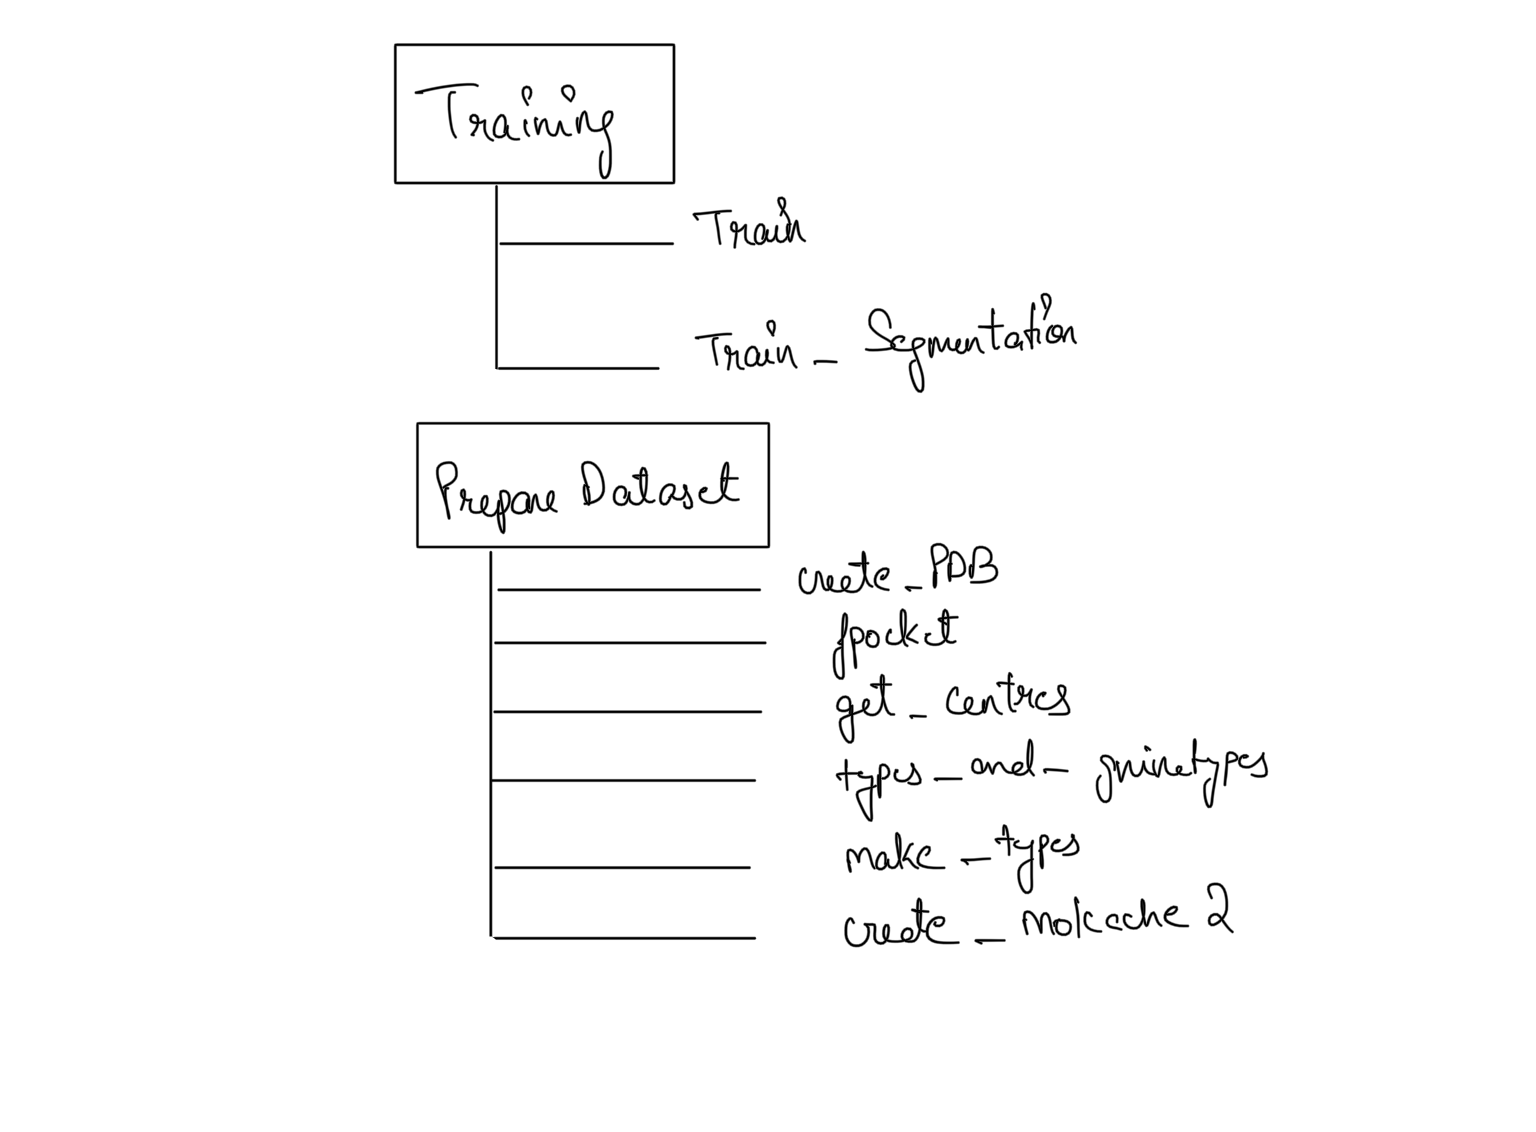 Training
Train
Train_Segmentation
Prepare Dataset
create_PDB
fpocket
get_centres
types_and_gninatypes
make_types
create_molcache2